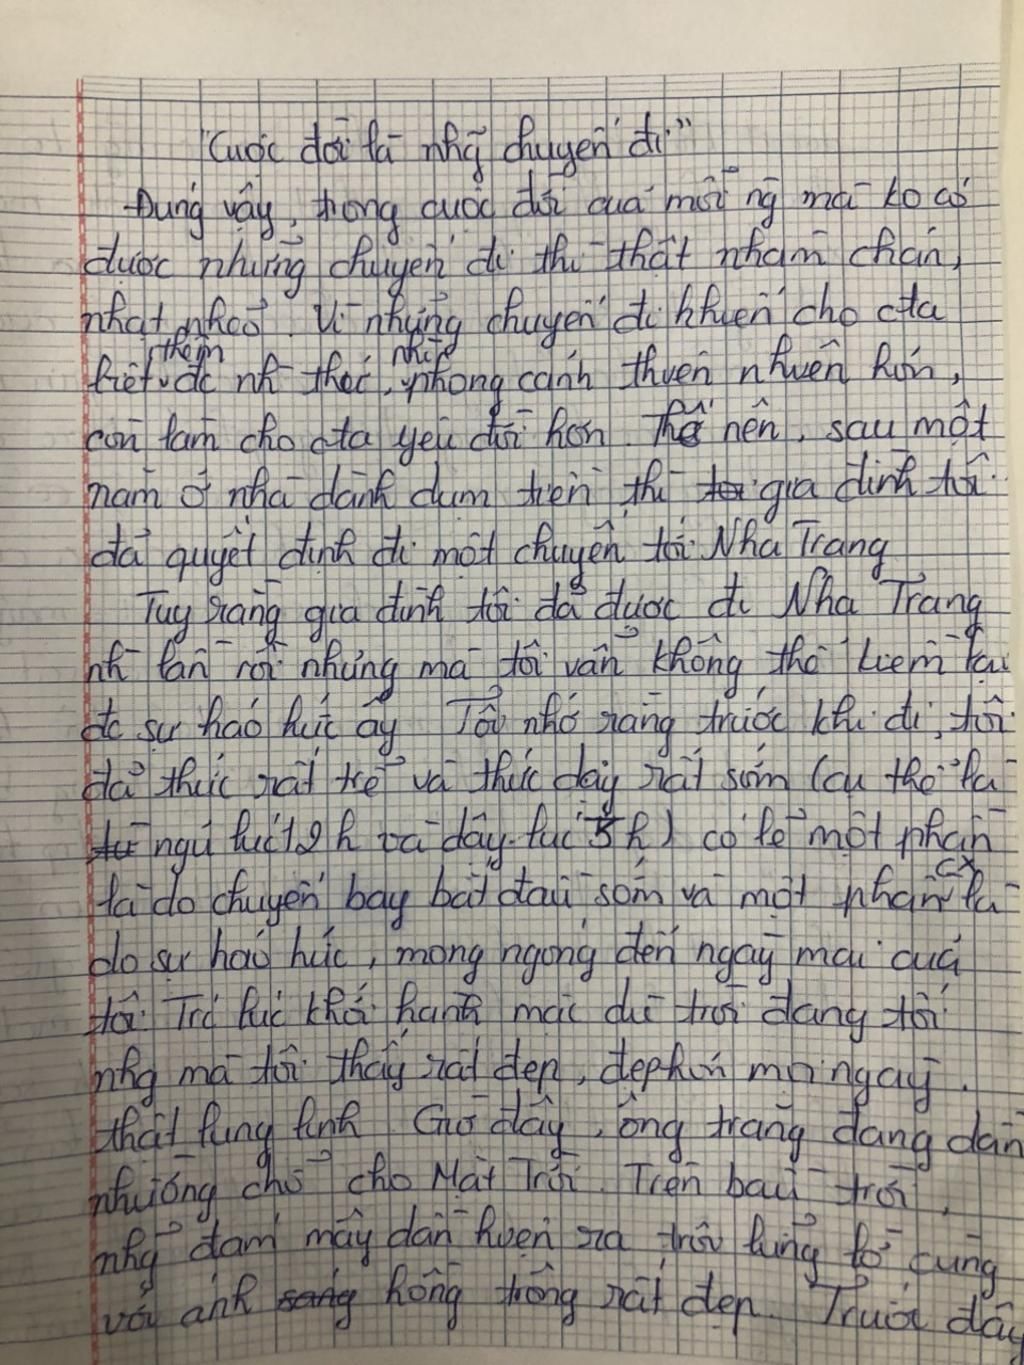 "Cuộc đời là nhg̃ chuyến đi"
Đúng vậy, trong cuộc đời của mỗi ng mà ko có
được những chuyến đi thì thật nhàm chán,
nhạt nhẽo. Vì những chuyến đi khiến cho cta
thêm nhìu
biết đc nh thứ, phong cảnh thiên nhiên hơn,
còn làm cho cta yêu đời hơn. Thế nên, sau một
năm ở nhà dành dụm tiền thì gia đình tôi
đã quyết định đi một chuyến tới Nha Trang
Tuy rằng gia đình tôi đã được đi Nha Trang
nh lần rồi nhưng mà tôi vẫn không thể kiềm lại
đc sự háo hức ấy. Tôi nhớ rằng trước khi đi, tôi
đã thức rất trễ và thức dậy rất sớm (cụ thể là
ngủ lúc 12h và dậy lúc 3h) có lẽ một phần
cx
là do chuyến bay bắt đầu sớm và một phần là
do sự háo hức, mong ngóng đến ngày mai của
tôi. Trc lúc khởi hành mặc dù trời đang tối
nhg mà tôi thấy rất đẹp, đẹp hơn mọi ngày.
thật lung linh. Giờ đây, ông trăng đang dần
nhường chỗ cho Mặt Trời. Trên bầu trời,
nhg̃ đám mây dần hiện ra trôi lững lờ cùng
với ánh hồng trông rất đẹp. Trước đây